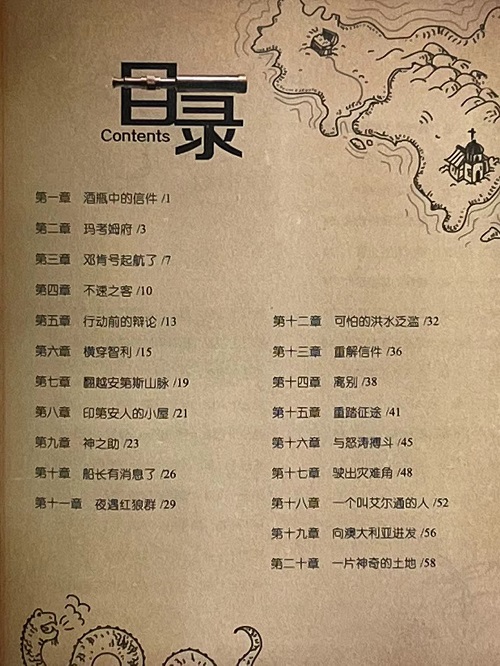 目录
Contents
第一章 酒瓶中的信件 /1
第二章 玛考姆府 /3
第三章 邓肯号起航了 /7
第四章 不速之客 /10
第五章 行动前的辩论 /13
第六章 横穿智利 /15
第七章 翻越安第斯山脉 /19
第八章 印第安人的小屋 /21
第九章 神之助 /23
第十章 船长有消息了 /26
第十一章 夜遇红狼群 /29
第十二章 可怕的洪水泛滥 /32
第十三章 重解信件 /36
第十四章 离别 /38
第十五章 重踏征途 /41
第十六章 与怒涛搏斗 /45
第十七章 驶出灾难角 /48
第十八章 一个叫艾尔通的人 /52
第十九章 向澳大利亚进发 /56
第二十章 一片神奇的土地 /58